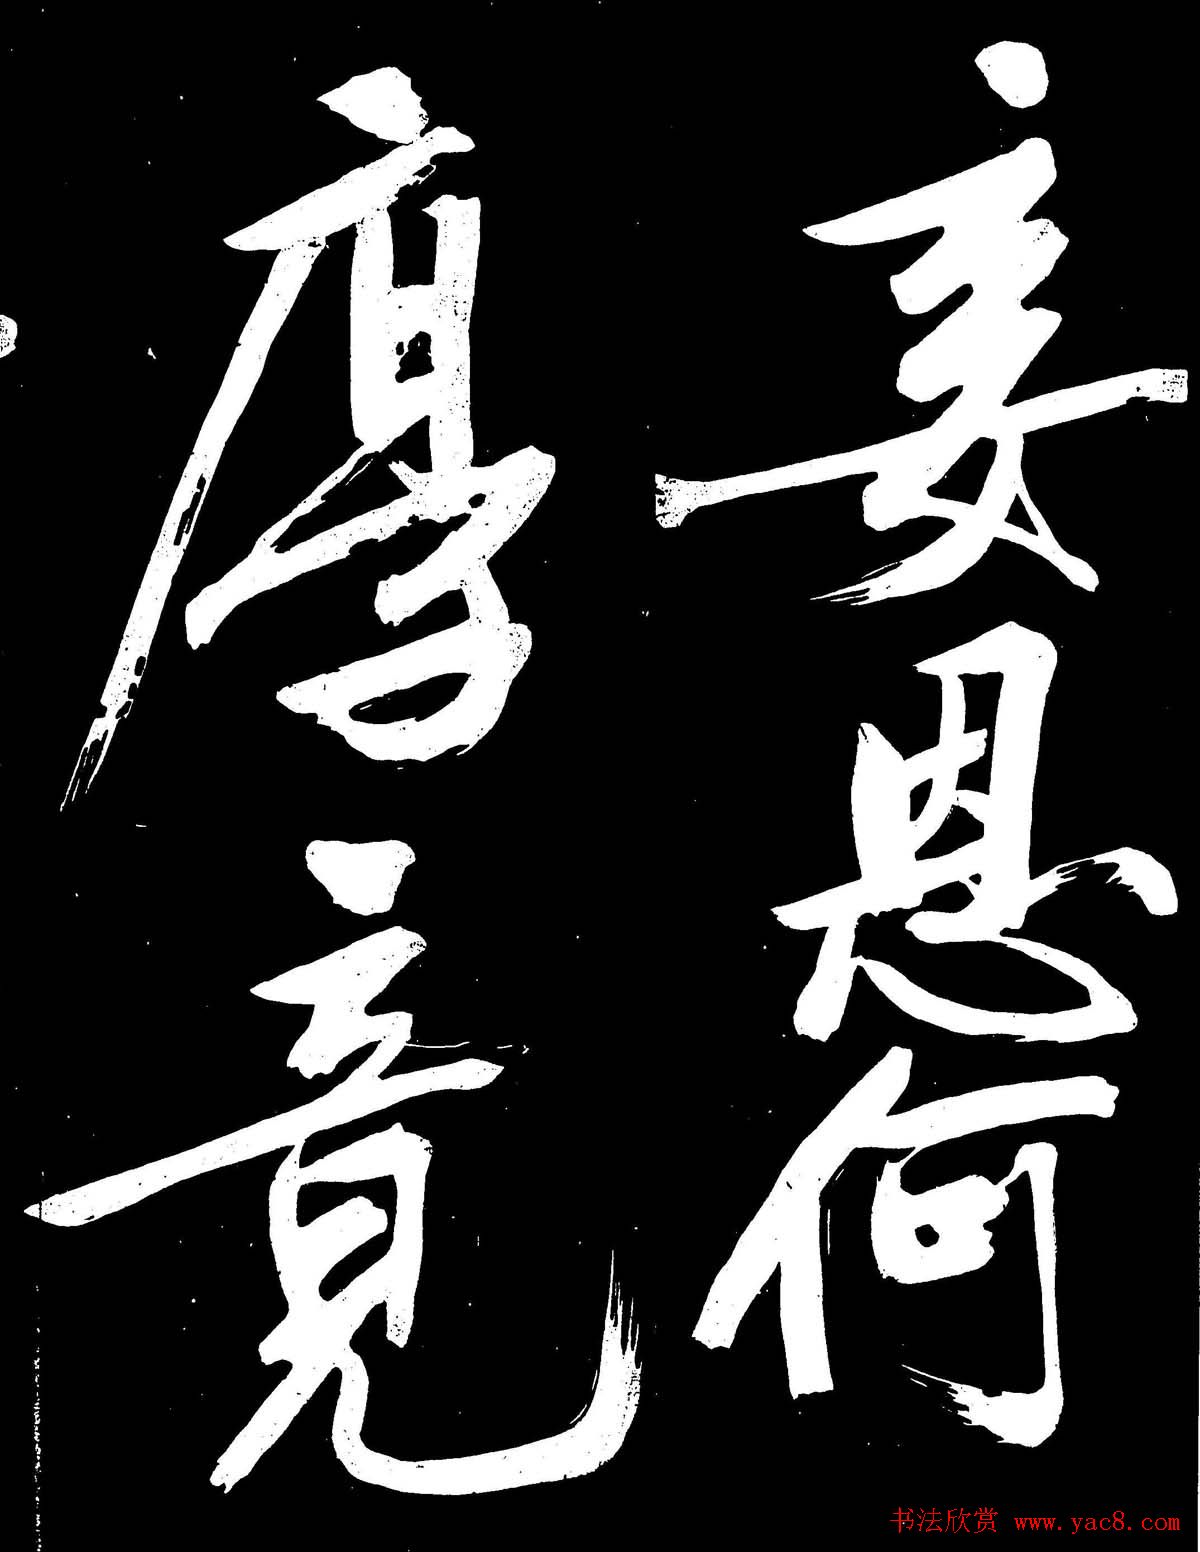 妾恩何
厚竟
书法欣赏 www.yac8.com